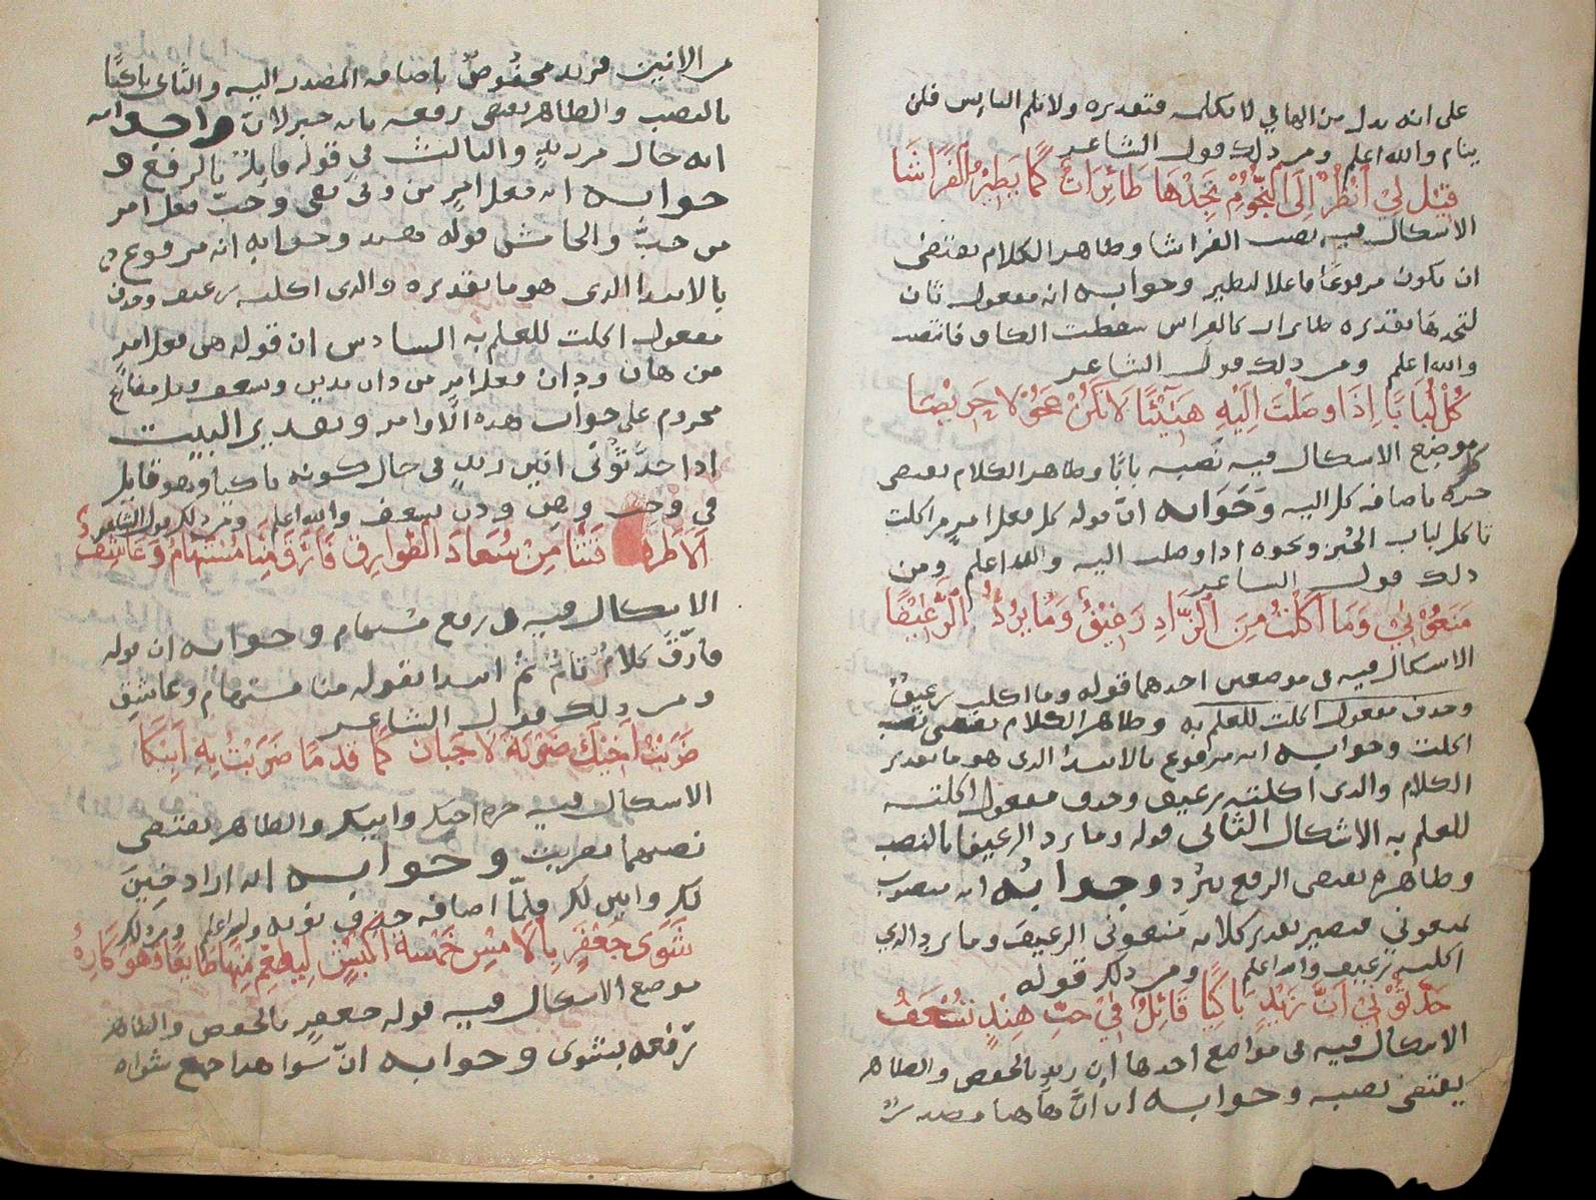 على انه بدل من الهاء في لا تكلمه فتقديره ولا تلم النايم فلن
ينام والله اعلم ومن ذلك قول الشاعر
قِيْلَ لِيْ اُنْظُرْ اِلَى النُّجُوْمِ تَجِدْهَا طَائِرَاتٌ كَمَا يَطِيْرُ الْفَرَاشَا
الاشكال فيه نصب الفراشا وظاهر الكلام يقتضى
ان يكون مرفوعا فاعلا ليطير وجوابه انه مفعول ثان
لتجدها تقديره طايرات كالفراش سقطت الكاف فانتصب
والله اعلم ومن ذلك قول الشاعر
كُلْ لُبَابًا اِذَا وصَلْتَ اِلَيْهِ هَنِيْئًا لَا تَكُنْ نَحْوُ لَا حَرِيْصًا
موضع الاشكال فيه نصبه بابًا وظاهر الكلام يقتضى
جره باضافه كل اليه وَجَوَابه انّ قوله كل فعل امرٍ من اكلت
تاكل لباب الخبز ونحوه اذا وصلت اليه والله اعلم ومن
ذلك قول الشاعر
مَنَعُوْنِيْ وَمَا اَكَلْتُ مِنَ الزَّادِ رَغِيْفٌ وَمَا يَرُدُّ الرَّغِيْفَا
الاشكال فيه في موضعين احدهما قوله وما اكلت رغيفٌ
وحذف مفعول اكلت للعلم به وظاهر الكلام يقتضى نصبه
اكلت وجوابه انه مرفوع بالابتدا الذى هو ما تقدير
الكلام والذى اكلته رغيف وحذف مفعول اكلته
للعلم به الاشكال الثانى قوله وما يرد الرغيفا بالنصب
وظاهره يقتضى الرفع بيرد وجوابُه انه منصوب
بمنعونى فيصير تقدير كلامه منعونى الرغيفَ وما يرد الذي
اكلته رغيف والله اعلم ومن ذلك قوله
حَدِّثُوْنِيْ اَنَّ زَيْدٍ بَاكِيًا قَائِلٌ فِيْ حَبِّ هِنْدٍ تُسْعَفُ
الاشكال فيه فى مواضع احدها ان زيدٍ بالخفض والظاهر
يقتضى نصبه وجوابه ان انَّ هاهنا مصدر
من الانين فزيد مخفوضٌ باضافه المصدر اليه والثانى باكيًا
بالنصب والظاهر يقتضى رفعه بانه خبر لانّ وجوابه
انه حال من زيدٍ والثالث فى قوله قايلٌ بالرفع
جوابه انه فعل امرٍ من وفى يفى وحبّ فعل امر
من حبَّ والخامس قوله هند وجوابه انه مرفوع
بالابتدا الذى هو ما تقديره والذى اكلته رغيف وحذف
مفعول اكلت للعلم به السادس ان قوله هن فعل امرٍ
من هان ودن فعل امرٍ من دان يدين وتسعف فعل مضارع
مجزوم على جواب هذه الاوامر وتقدير البيت
اذا حدّثُوْنى انين زيدٍ فى حال كونه باكيا وهو قايل
فى وحب وهن ودن تسعف والله اعلم ومن ذلك قول الشاعر
اَلَا طَرَ قَتْنَا مِنْ سُعَادَ الطَّوَارِقُ فَاَرَّقَ مِنَّا مُسْتَهَامٌ وَعَاشِقُ
الاشكال فيه فى رفع مستهام وجوابه ان قوله
فارّقَ كلامٌ تامٌّ ثم ابتدا بقوله منا مستهام وعاشِق
ومن ذلك قول الشاعر
ضَرَبْتُ اَخِيْكَ ضَرْبَةَ لَا جَبَانِ كَمَا قِدْمًا ضَرَبْتُ بِهِ اَبِيْكَا
الاشكال فيه جره اخيك وابيك والظاهر يقتضى
نصبهما بضربت وجوابه انه اراد اخِيْنَ
لك وابين لك فلمّا اضافه حذف نونه والله اعلم ومن ذلك
شَوَى جَعْفَرٍ بِالْاَمْسِ خَمْسَةَ اَكْبُشٍ لِيُطْعِمَ مِنْهَا طَائِعًا وَهْوَ كَارِهُ
موضع الاشكال فيه قوله جعفرٍ بالخفض والظاهر
رفعه بشوى وجوابه انّ شوا هذا جمع شواه